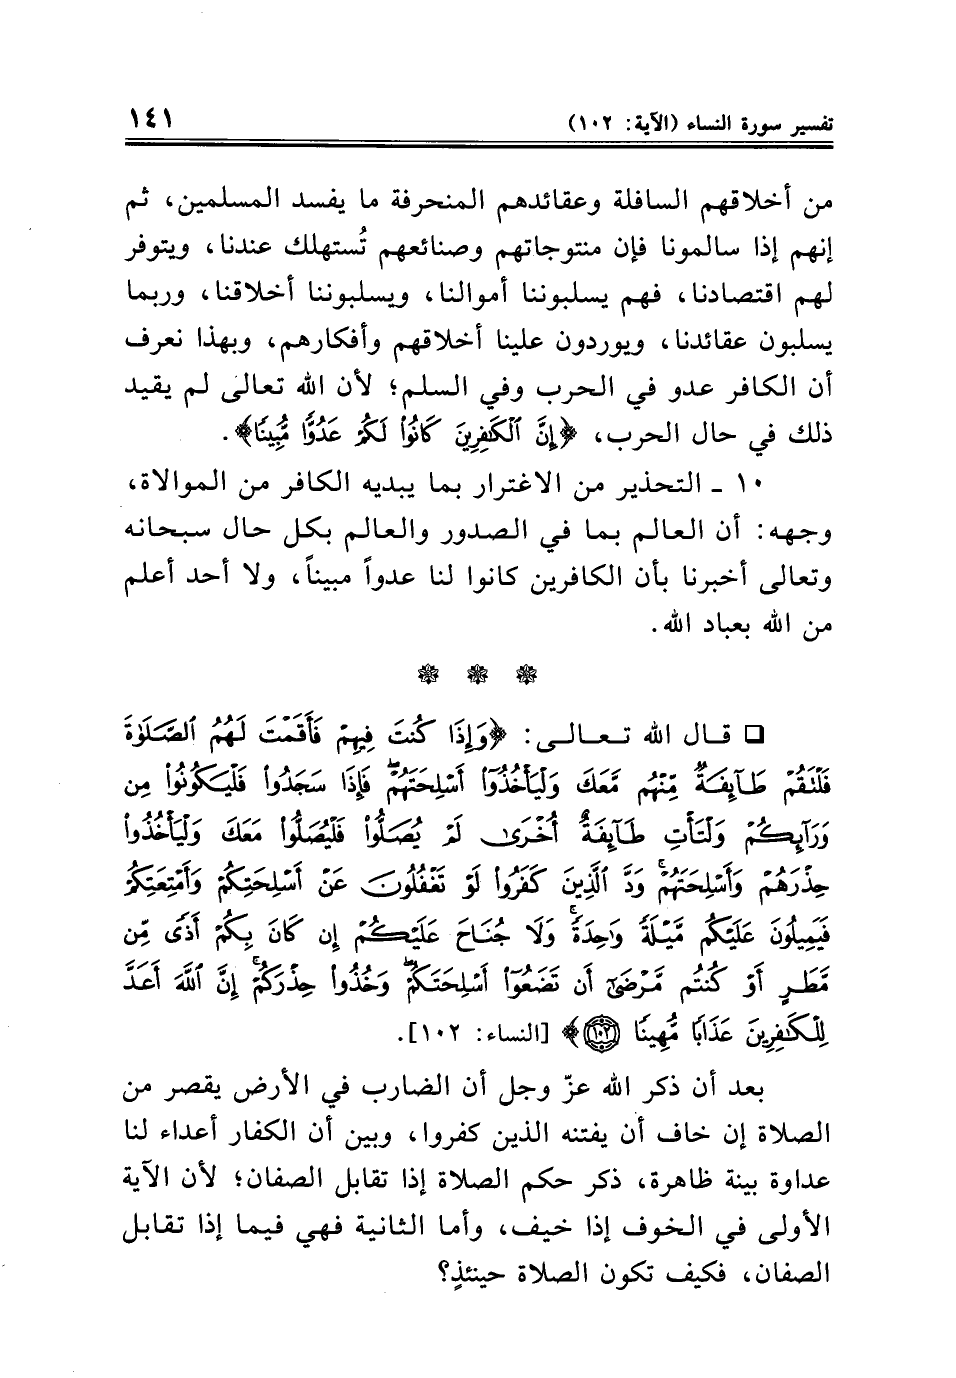 تفسير سورة النساء (الآية: ١٠٢) ١٤١
من أخلاقهم السافلة وعقائدهم المنحرفة ما يفسد المسلمين، ثم
إنهم إذا سالمونا فإن منتوجاتهم وصنائعهم تُستهلك عندنا، ويتوفر
لهم اقتصادنا، فهم يسلبوننا أموالنا، ويسلبوننا أخلاقنا، وربما
يسلبون عقائدنا، ويوردون علينا أخلاقهم وأفكارهم، وبهذا نعرف
أن الكافر عدو في الحرب وفي السلم؛ لأن الله تعالى لم يقيد
ذلك في حال الحرب، ﴿إِنَّ ٱلْكَٰفِرِينَ كَانُوا۟ لَكُمْ عَدُوًّا مُّبِينًا﴾.
١٠ ـ التحذير من الاغترار بما يبديه الكافر من الموالاة،
وجهه: أن العالم بما في الصدور والعالم بكل حال سبحانه
وتعالى أخبرنا بأن الكافرين كانوا لنا عدواً مبيناً، ولا أحد أعلم
من الله بعباد الله.
❁ ❁ ❁
❑ قـال الله تـعـالـى: ﴿وَإِذَا كُنتَ فِيهِمْ فَأَقَمْتَ لَهُمُ ٱلصَّلَوٰةَ
فَلْتَقُمْ طَآئِفَةٌ مِّنْهُم مَّعَكَ وَلْيَأْخُذُوٓا۟ أَسْلِحَتَهُمْۖ فَإِذَا سَجَدُوا۟ فَلْيَكُونُوا۟ مِن
وَرَآئِكُمْ وَلْتَأْتِ طَآئِفَةٌ أُخْرَىٰ لَمْ يُصَلُّوا۟ فَلْيُصَلُّوا۟ مَعَكَ وَلْيَأْخُذُوا۟
حِذْرَهُمْ وَأَسْلِحَتَهُمْۗ وَدَّ ٱلَّذِينَ كَفَرُوا۟ لَوْ تَغْفُلُونَ عَنْ أَسْلِحَتِكُمْ وَأَمْتِعَتِكُمْ
فَيَمِيلُونَ عَلَيْكُم مَّيْلَةً وَٰحِدَةًۚ وَلَا جُنَاحَ عَلَيْكُمْ إِن كَانَ بِكُمْ أَذًى مِّن
مَّطَرٍ أَوْ كُنتُم مَّرْضَىٰٓ أَن تَضَعُوٓا۟ أَسْلِحَتَكُمْۖ وَخُذُوا۟ حِذْرَكُمْۗ إِنَّ ٱللَّهَ أَعَدَّ
لِلْكَٰفِرِينَ عَذَابًا مُّهِينًا ١٠٢﴾ [النساء: ١٠٢].
بعد أن ذكر الله عزّ وجل أن الضارب في الأرض يقصر من
الصلاة إن خاف أن يفتنه الذين كفروا، وبين أن الكفار أعداء لنا
عداوة بينة ظاهرة، ذكر حكم الصلاة إذا تقابل الصفان؛ لأن الآية
الأولى في الخوف إذا خيف، وأما الثانية فهي فيما إذا تقابل
الصفان، فكيف تكون الصلاة حينئذٍ؟